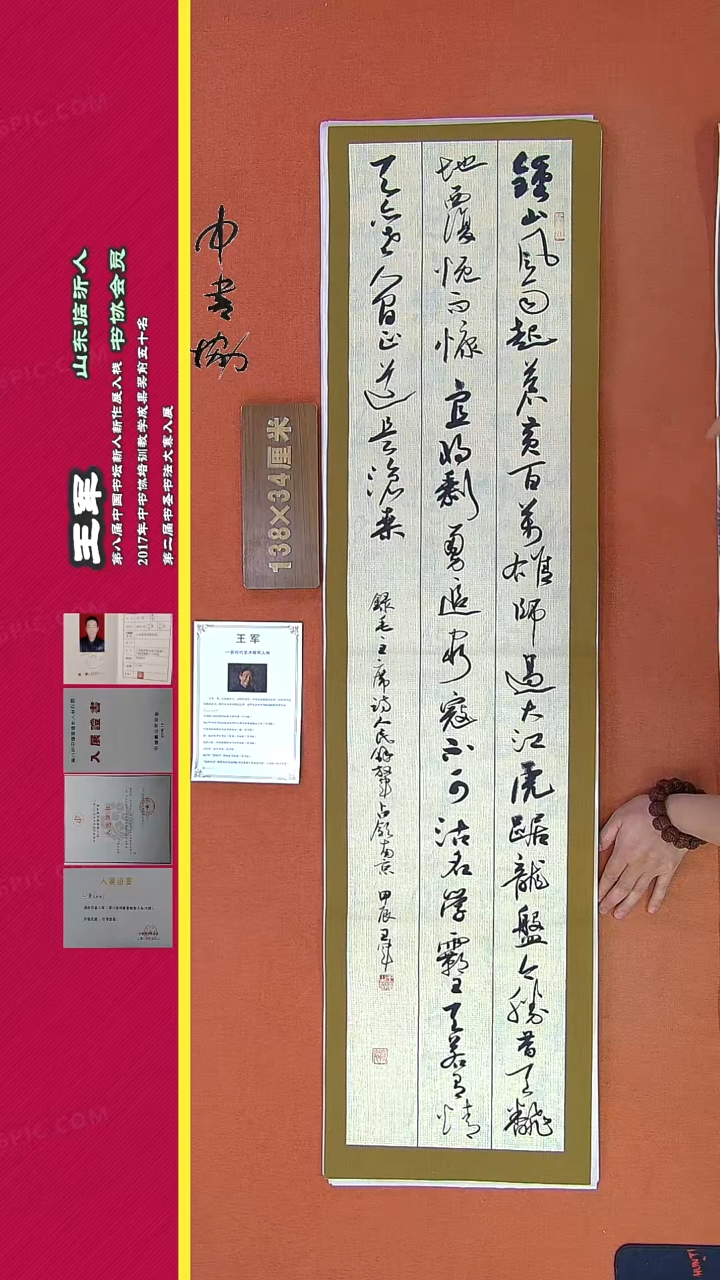 鍾山風雨起蒼黄百萬雄師過大江虎踞龍盤今勝昔天翻
地覆慨而慷宜將剩勇追窮寇不可沽名學霸王天若有情
天亦老人間正道是滄桑
錄毛主席詩人民解放軍占領南京 甲辰王军
中书协
138×34厘米
王军
王军
山东临沂人 书协会员
第八届中国书坛新人新作展入展
2017年中书协培训教学成果奖前五十名
第二届书圣书法大赛入展
入展證書